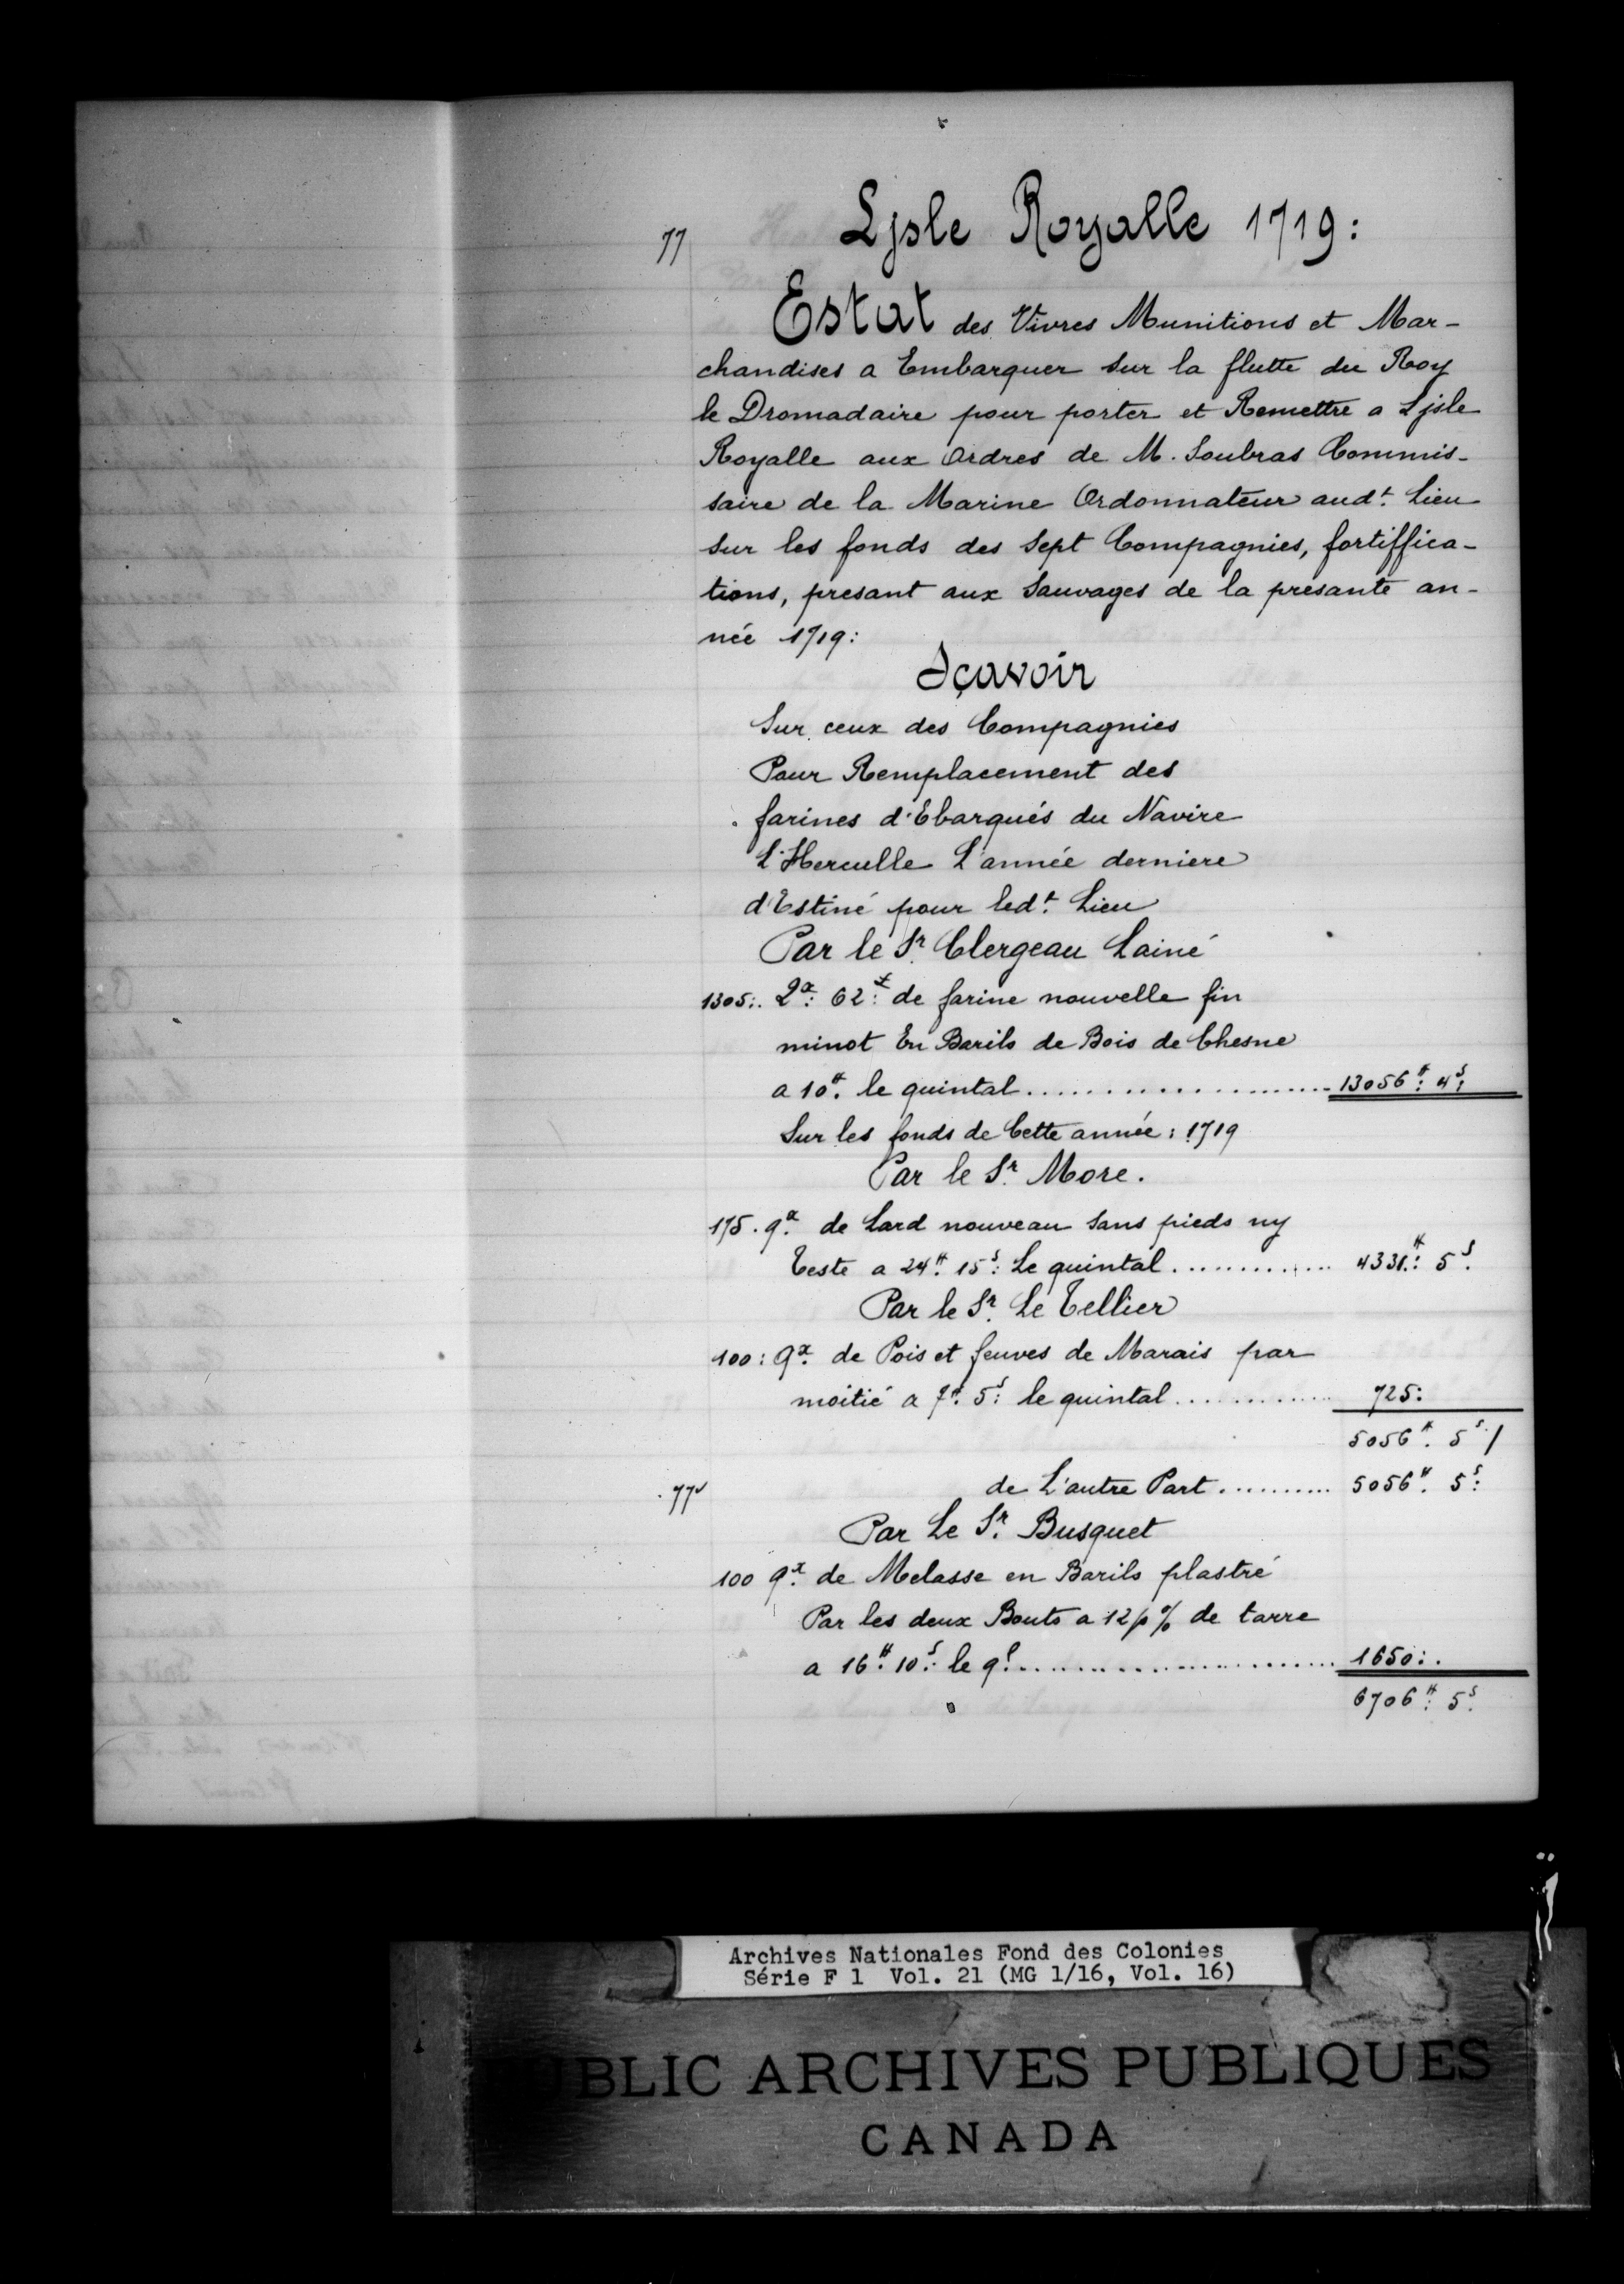 77
Ljsle Royalle 1719:
Estat des Vivres Munitions et Mar-
chandises a Embarquer sur la flutte du Roy
le Dromadaire pour porter et Remettre a Ljsle
Royalle aux Ordres de M. Soubras Commis-
saire de la Marine Ordonnateur aud.t Lieu
sur les fonds des Sept Compagnies, fortiffica-
tions, presant aux Sauvages de la presante an-
née 1719:
Sçavoir
Sur ceux des Compagnies
Pour Remplacement des
farines d'Ebarqués du Navire
L'Herculle L'année derniere
d'Estiné pour led.t Lieu
Par le S.r Clergeau Lainé
1305:. Qx: 62 ₶: de farine nouvelle fin
minot En Barils de Bois de Chesne
a 10 ₶. le quintal.................... 13056 ₶: 4 s:
Sur les fonds de Cette année: 1719
Par le S.r More.
175. qx. de Lard nouveau sans pieds ny
Teste a 24 ₶. 15 s: Le quintal............. 4331 ₶: 5 s.
Par le S.r Le Tellier
100: qx. de Pois et feuves de Marais par
moitié a 7 ₶. 5 s: le quintal............. 725:
5056 ₶. 5 s. /
77v
de L'autre Part.......... 5056 ₶. 5 s:
Par Le S.r Busquet
100 qx. de Melasse en Barils plastré
Par les deux Bouts a 12 p % de tarre
a 16 ₶: 10 s: le q.l........................ 1650:.
6706 ₶: 5 s.
Archives Nationales Fond des Colonies
Série F 1 Vol. 21 (MG 1/16, Vol. 16)
PUBLIC ARCHIVES PUBLIQUES
CANADA